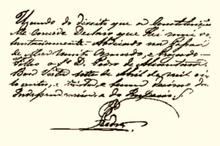 Usando do direito que a Constituição
Me concede Declaro que Hei mui vo
luntariamente Abdicado na Pessoa
de Meu muito Amado, e Prezado
Filho o Sr. D. Pedro de Alcantara
Boa Vista sete de Abril de mil oi
to centos, e trinta e hum, decimo da
Independencia e do Imperio
Pedro